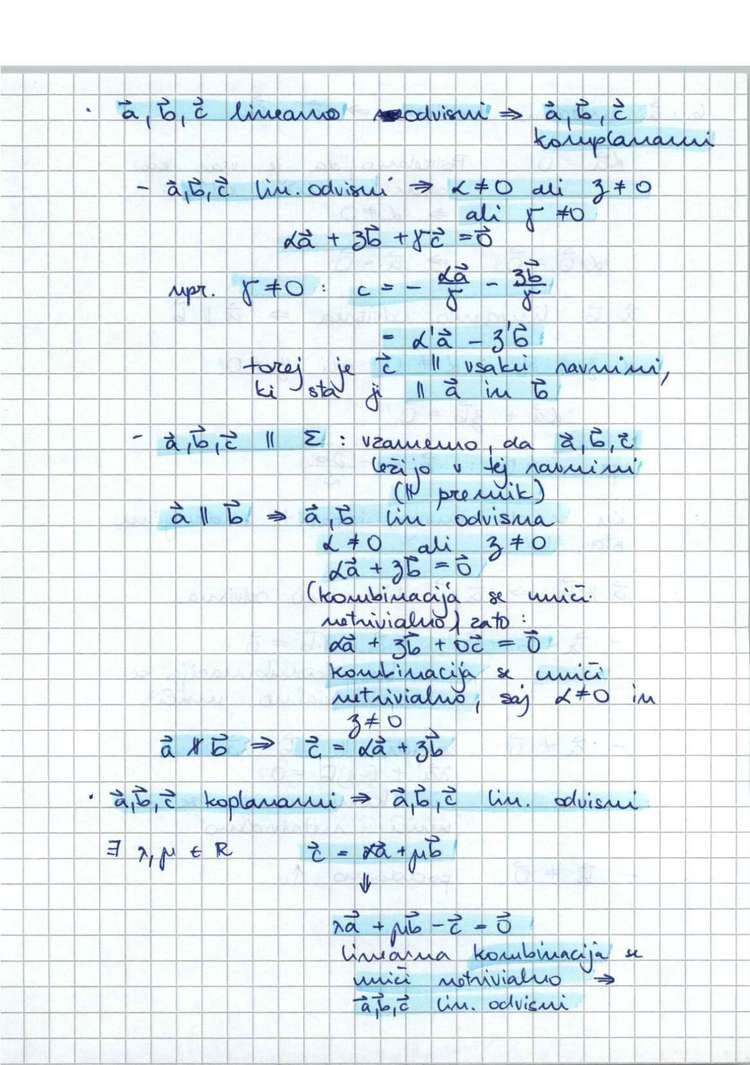 · a⃗, b⃗, c⃗ linearno odvisni ⇒ a⃗, b⃗, c⃗
komplanarni
- a⃗, b⃗, c⃗ lin. odvisni ⇒ α ≠ 0 ali β ≠ 0
ali γ ≠ 0
αa⃗ + βb⃗ + γc⃗ = 0⃗
npr. γ ≠ 0 : c = - αa⃗/γ - βb⃗/γ
= α'a⃗ - β'b⃗
torej je c⃗ || vsaki ravnini,
ki sta ji || a⃗ in b⃗
- a⃗, b⃗, c⃗ || Σ : vzamemo, da a⃗, b⃗, c⃗
ležijo v tej ravnini
(|| premik)
a⃗ || b⃗ ⇒ a⃗, b⃗ lin odvisna
α ≠ 0 ali β ≠ 0
αa⃗ + βb⃗ = 0⃗
(kombinacija se uniči
netrivialno) zato :
αa⃗ + βb⃗ + 0c⃗ = 0⃗
kombinacija se uniči
netrivialno, saj α ≠ 0 in
β ≠ 0
a⃗ ∦ b⃗ ⇒ c⃗ = αa⃗ + βb⃗
· a⃗, b⃗, c⃗ koplanarni ⇒ a⃗, b⃗, c⃗ lin. odvisni
∃ λ, μ ∈ R c⃗ = αa⃗ + μb⃗
⇓
λa⃗ + μb⃗ - c⃗ = 0⃗
linearna kombinacija se
uniči netrivialno ⇒
a⃗, b⃗, c⃗ lin. odvisni